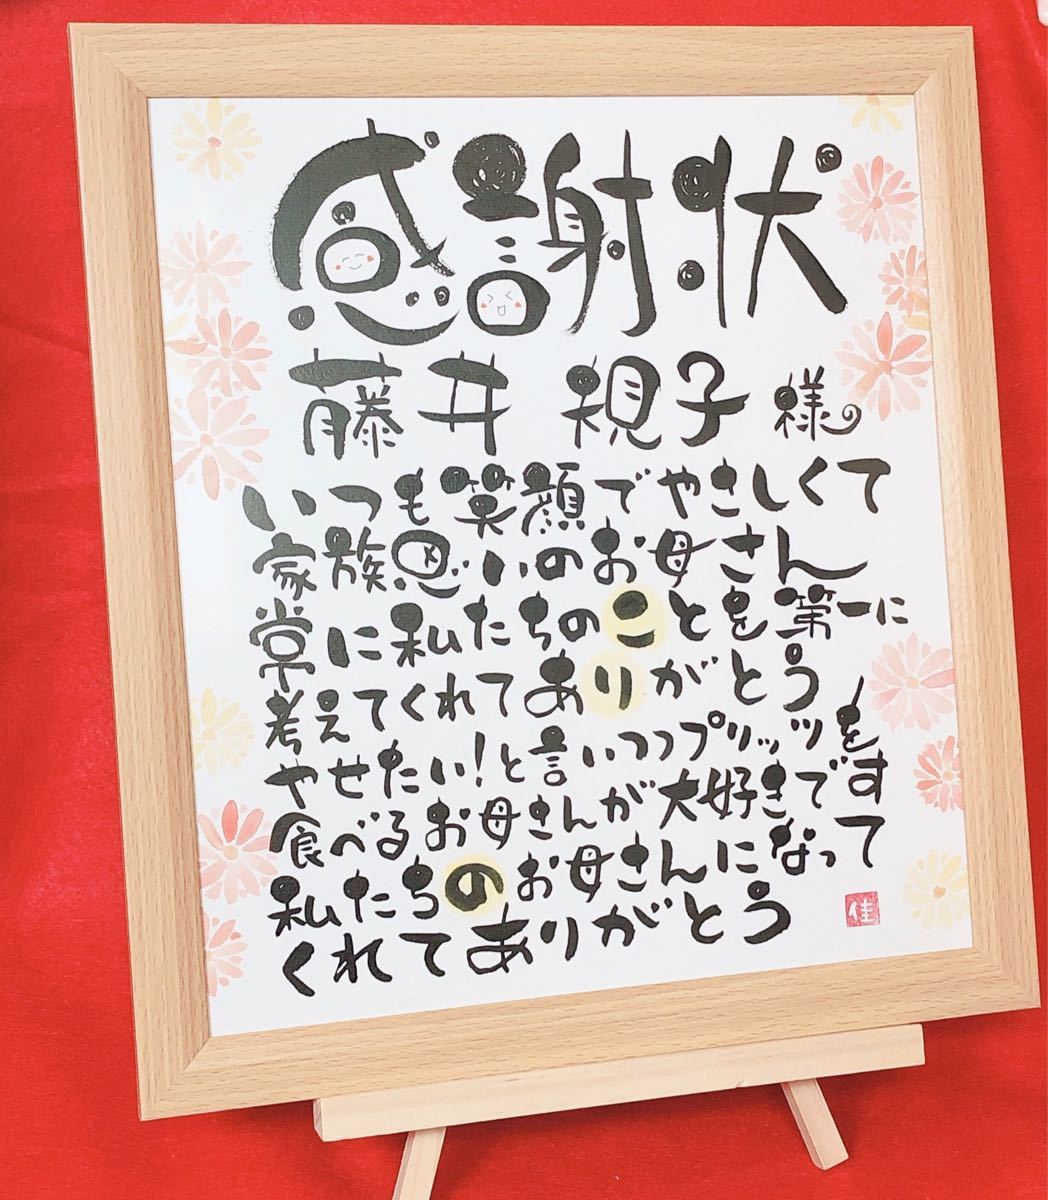 感謝状
藤井 親子 様
いつも笑顔でやさしくて
家族思いのお母さん
常に私たちのことを第一に
考えてくれてありがとう
やせたい!と言いつつプリッツをす
食べるお母さんが大好きです
私たちのお母さんになって
くれてありがとう
佳